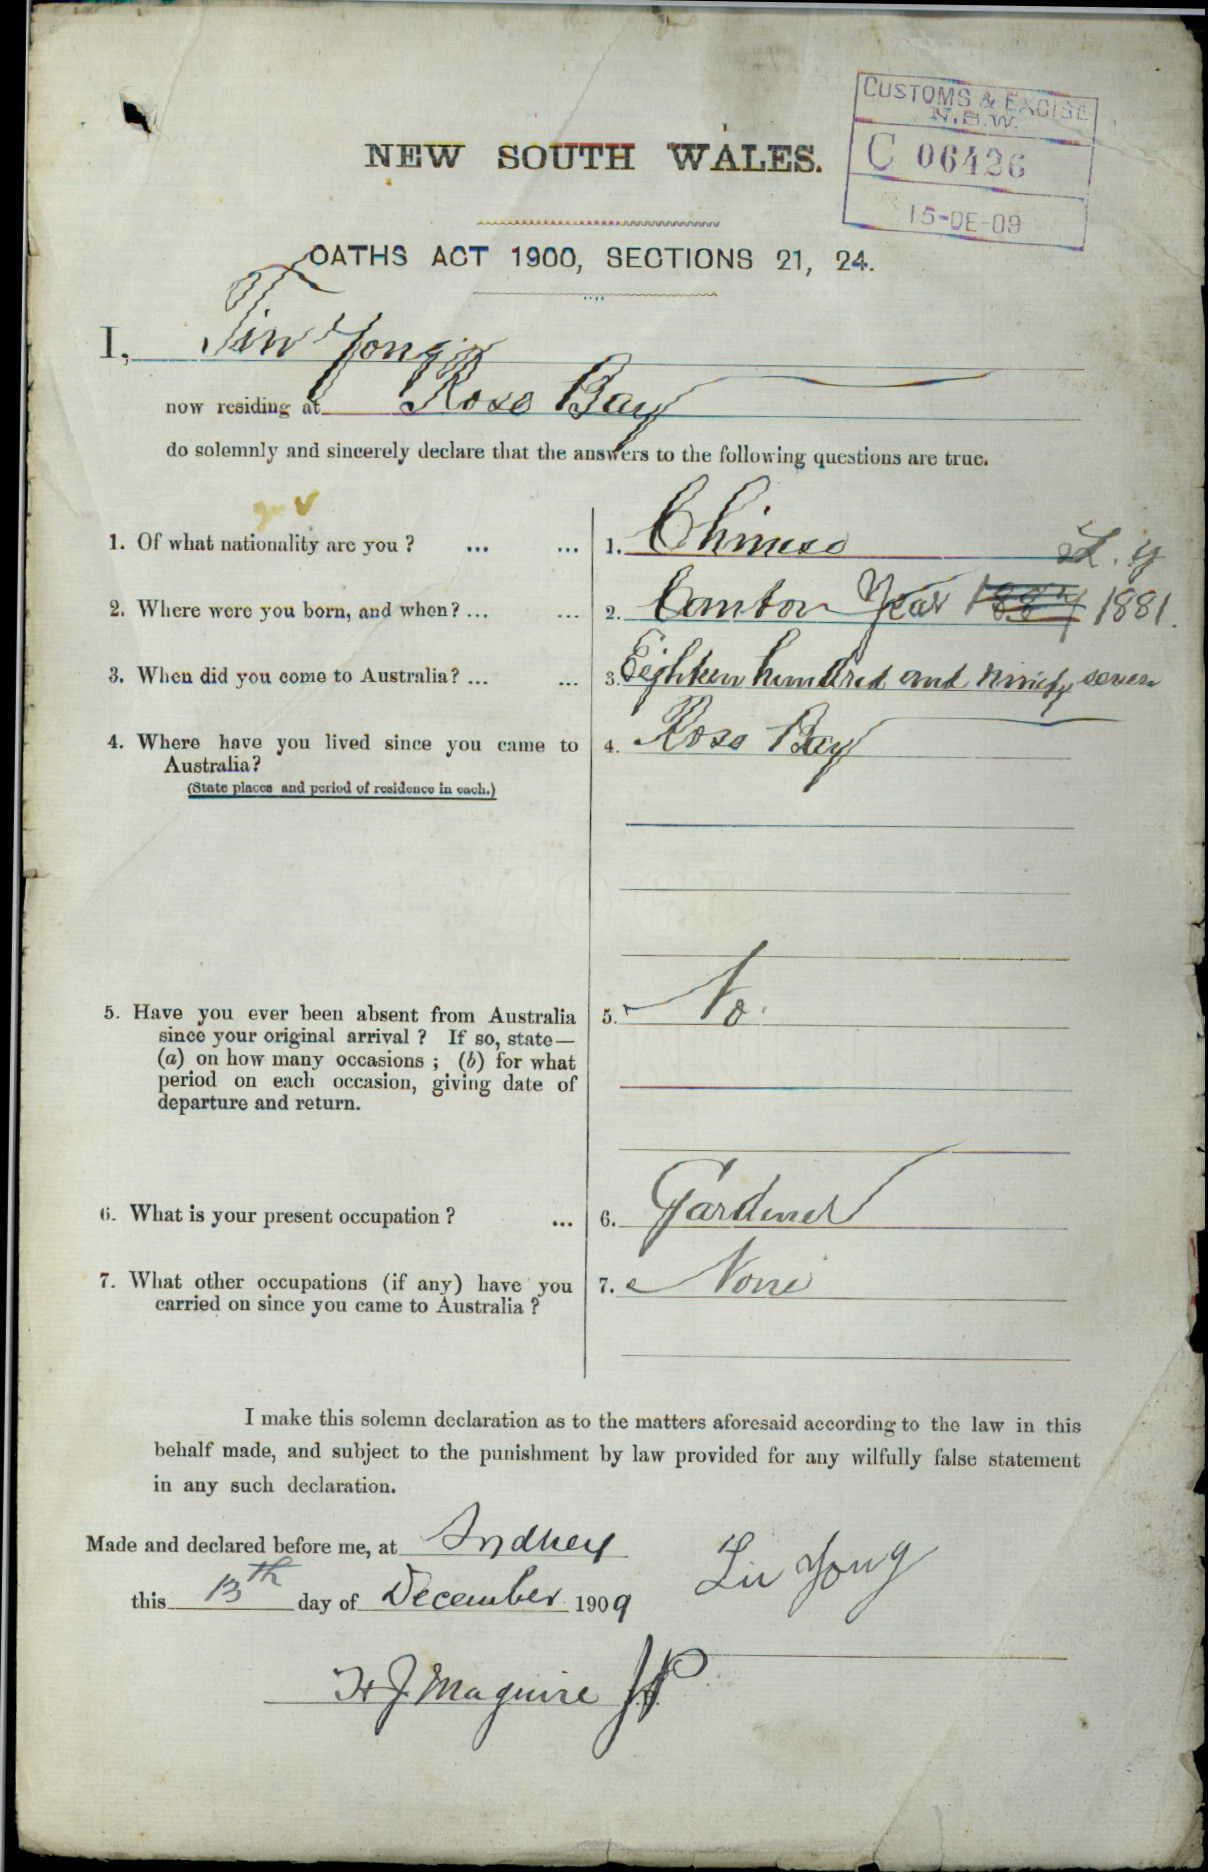 CUSTOMS & EXCISE
N.S.W.
C 06426
15-DE-09
NEW SOUTH WALES.
OATHS ACT 1900, SECTIONS 21, 24.
I, Tin Yong
now residing at Rose Bay
do solemnly and sincerely declare that the answers to the following questions are true.
1. Of what nationality are you ? ... ... 1. Chinese
L. y
2. Where were you born, and when? ... ... 2. Canton Year 1881.
3. When did you come to Australia? ... ... 3. Eighteen hundred and ninety seven
4. Where have you lived since you came to 4. Rose Bay
Australia?
(State places and period of residence in each.)
5. Have you ever been absent from Australia 5. No.
since your original arrival ? If so, state—
(a) on how many occasions ; (b) for what
period on each occasion, giving date of
departure and return.
6. What is your present occupation ? ... 6. Gardener
7. What other occupations (if any) have you 7. None
carried on since you came to Australia ?
I make this solemn declaration as to the matters aforesaid according to the law in this
behalf made, and subject to the punishment by law provided for any wilfully false statement
in any such declaration.
Made and declared before me, at Sydney
Liu Yong
this 13th day of December 1909
H J Maguire JP